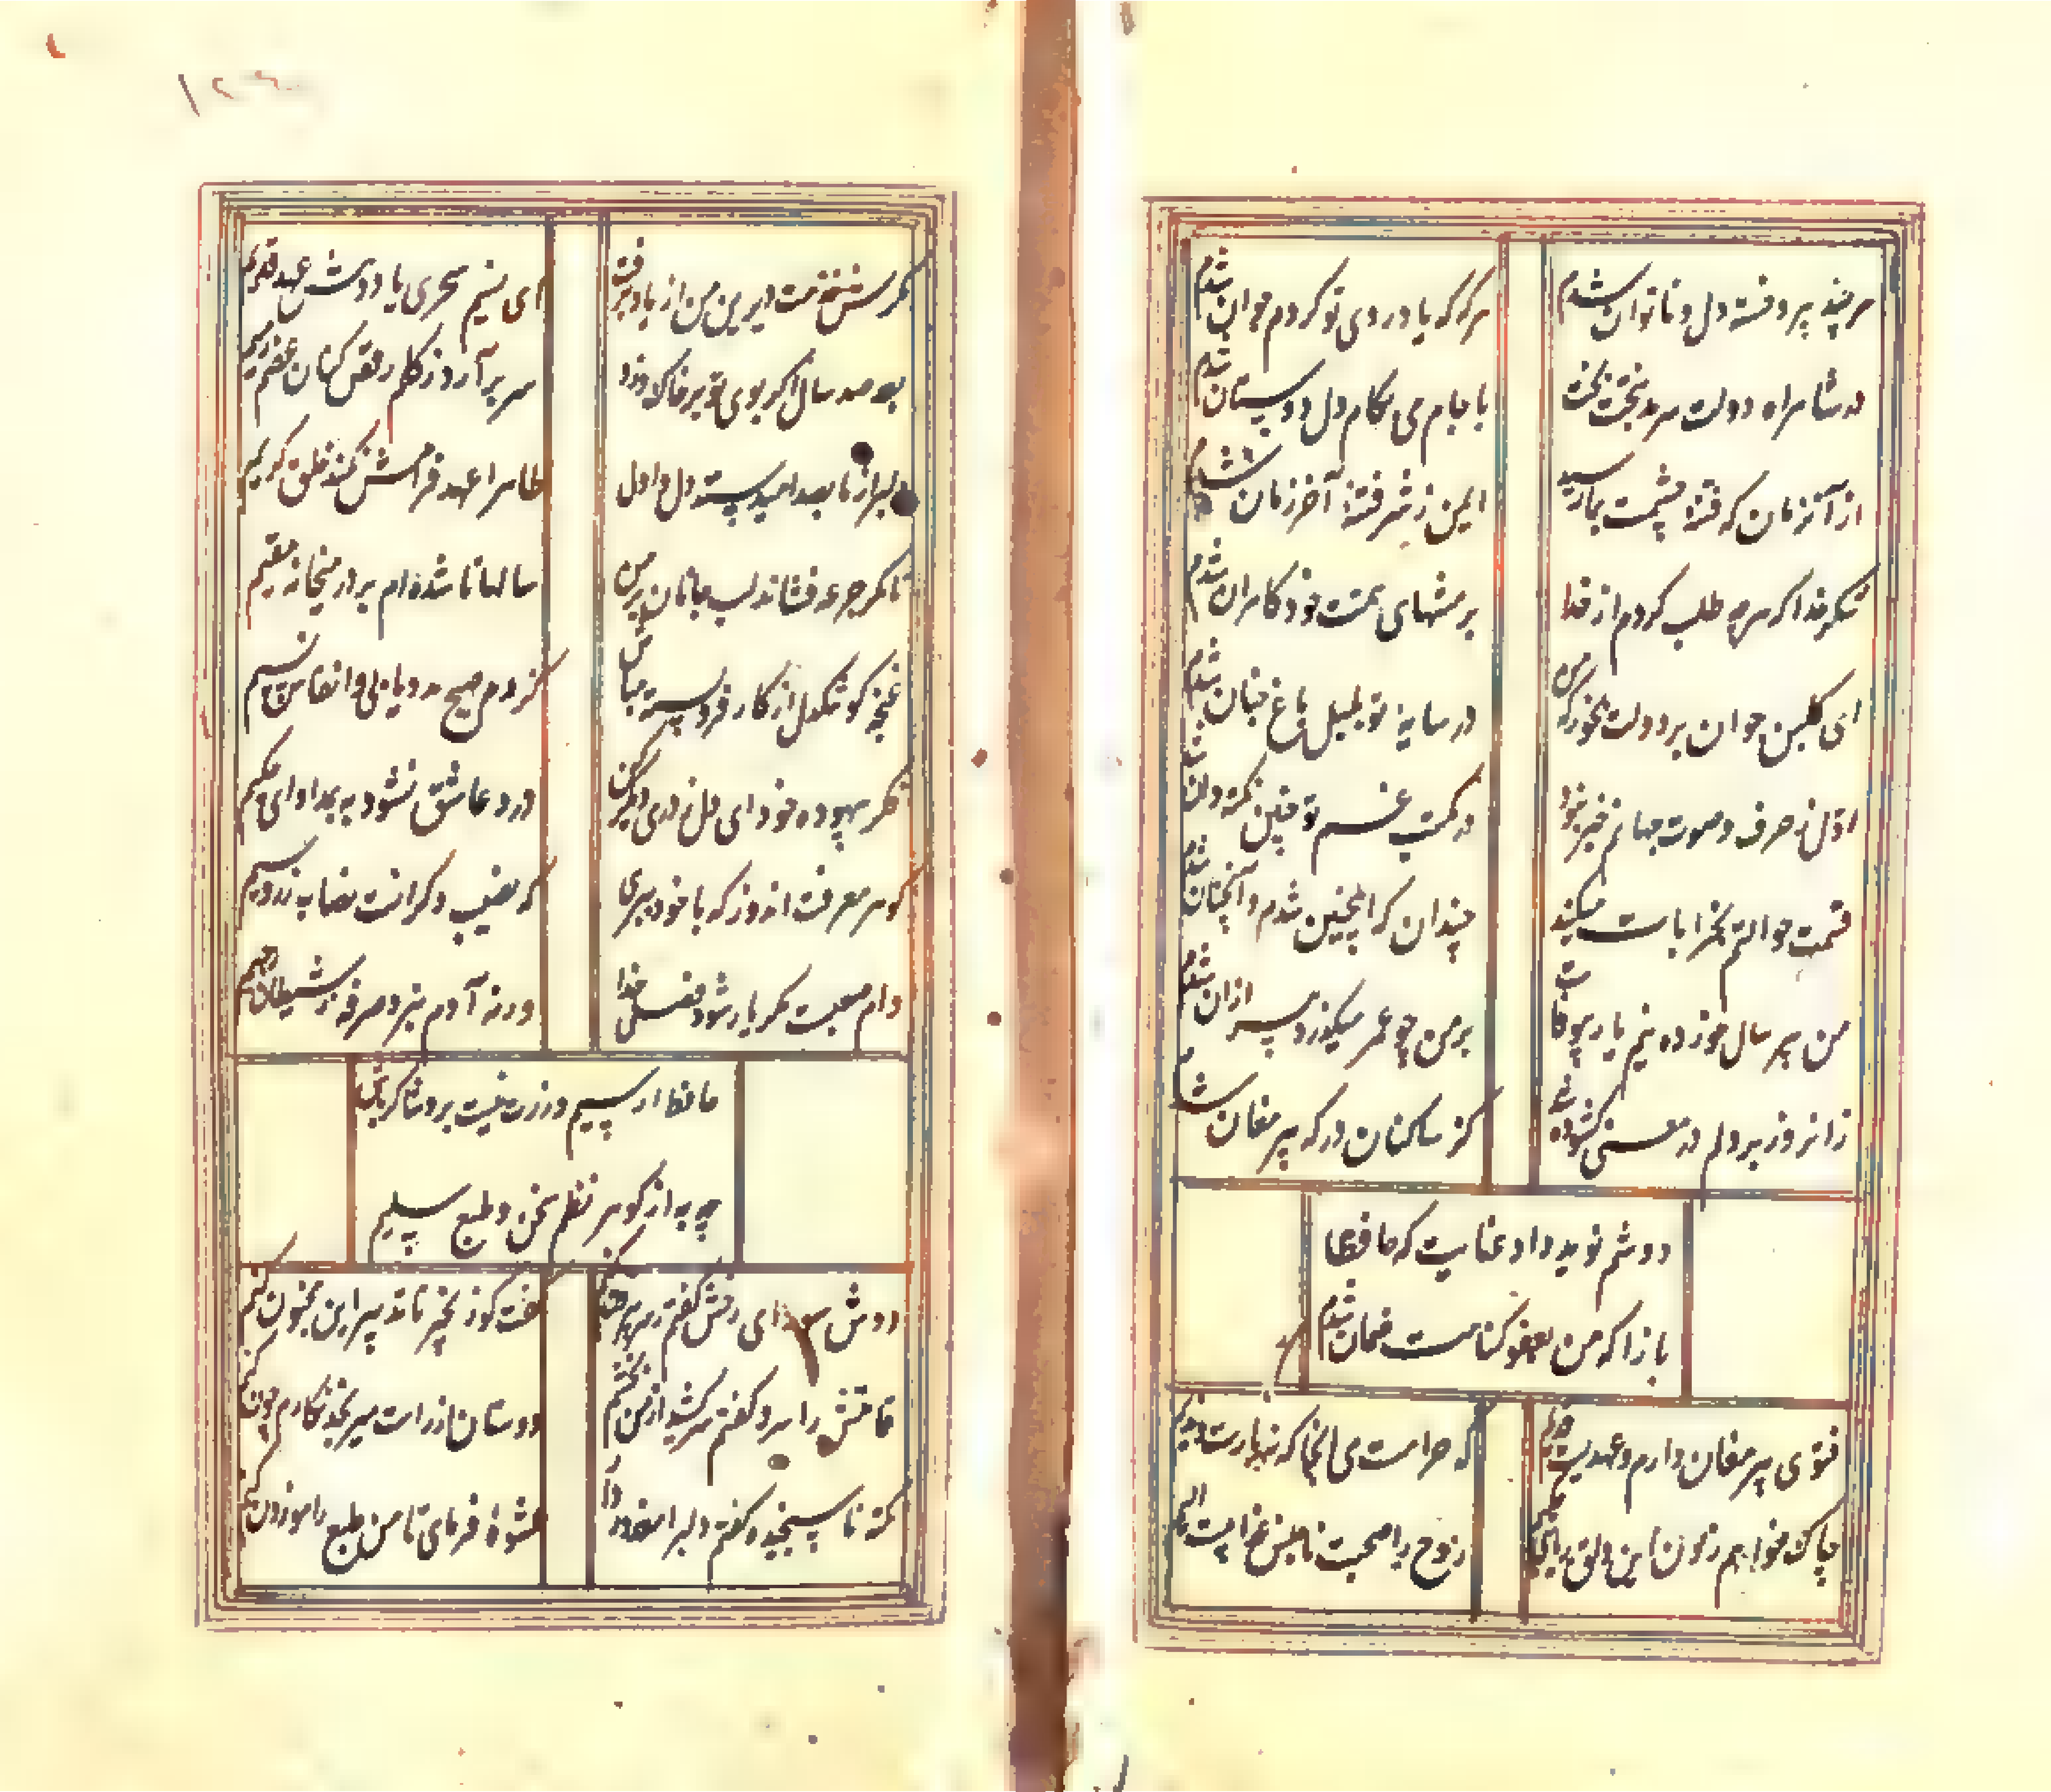 هر چند پیر و خسته دل و ناتوان شدم
هر که که یاد روی تو کردم جوان شدم
در شاهراه دولت سرمد بتخت بخت
با جام می بکام دل دوستان شدم
از آن زمان که فتنه چشمت بمن رسید
ایمن ز شر فتنه آخر زمان شدم
شکر خدا که هرچه طلب کردم از خدا
بر منتهای همت خود کامران شدم
ای گلبن جوان بر دولت بخور که من
در سایه تو بلبل باغ جنان شدم
اول ز حرف و صوت جهانم خبر نبود
در مکتب غم تو چنین نکته دان شدم
قسمت حوالتم بخرابات میکند
چندان که اینچنین شدم و آنچنان شدم
من پیر سال خورده نیم یار بیوفاست
بر من چو عمر میگذرد پیر از آن شدم
زانروز بر دلم در معنی گشوده شد
کز ساکنان درگه پیر مغان شدم
دوشم نوید داد عنایت که حافظا
بازا که من بعفو گناهت ضمان شدم
فتوی پیر مغان دارم و عهدیست قدیم
که حرامست می آنجا که نه یارست ندیم
چاک خواهم زدن این دلق ریائی چکنم
روح را صحبت ناجنس عذابیست الیم
مگرش خدمت دیرین من از یاد برفت
ای نسیم سحری یاد دهش عهد قدیم
بعد صد سال اگر بوی تو بر خاک وزد
سر برآرد ز گلم رقص کنان عظم رمیم
دلبر از ما بصد امید ستد اول دل
ظاهرا عهد فرامش نکند خلق کریم
تا مگر جرعه فشاند لب جانان بر من
سالها تا شده ام بر در میخانه مقیم
غنچه گو تنگدل از کار فروبسته مباش
کز دم صبح مدد یابی و انفاس نسیم
فکر بهبود خود ای دل ز دری دیگر کن
درد عاشق نشود به بمداوای حکیم
گوهر معرفت اندوز که با خود ببری
که نصیب دگرانست نصاب زر و سیم
دام سختست مگر یار شود فضل خدا
ورنه آدم نبرد صرفه ز شیطان رجیم
حافظ ار سیم و زرت نیست برو شاکر باش
چه به از گوهر نظم سخن و طبع سلیم
دوش سودای رخش گفتم ز سر بیرون کنم
گفت کو زنجیر تا تدبیر این مجنون کنم
قامتش را سرو گفتم سر کشید از من بخشم
دوستان از راست میرنجد نگارم چون کنم
نکته ناسنجیده گفتم دلبرا معذور دار
عشوه فرمای تا من طبع را موزون کنم